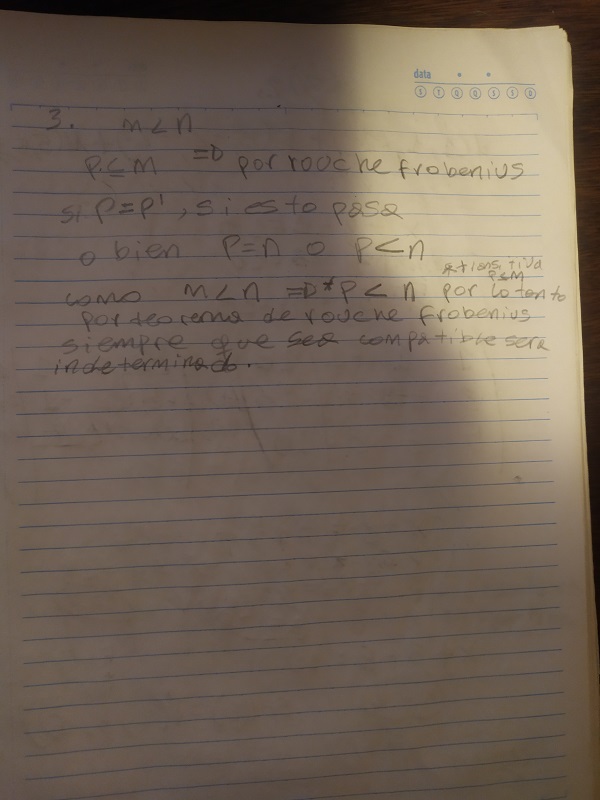 data
S T Q Q S S D
3. m < n
P ≤ M => por rouche frobenius
si P = P', si esto pasa
o bien P = n o P < n
*transitiva
P ≤ M
como m < n =>* P < n por lo tanto
por teorema de rouche frobenius
siempre que sea compatible sera
indeterminado.